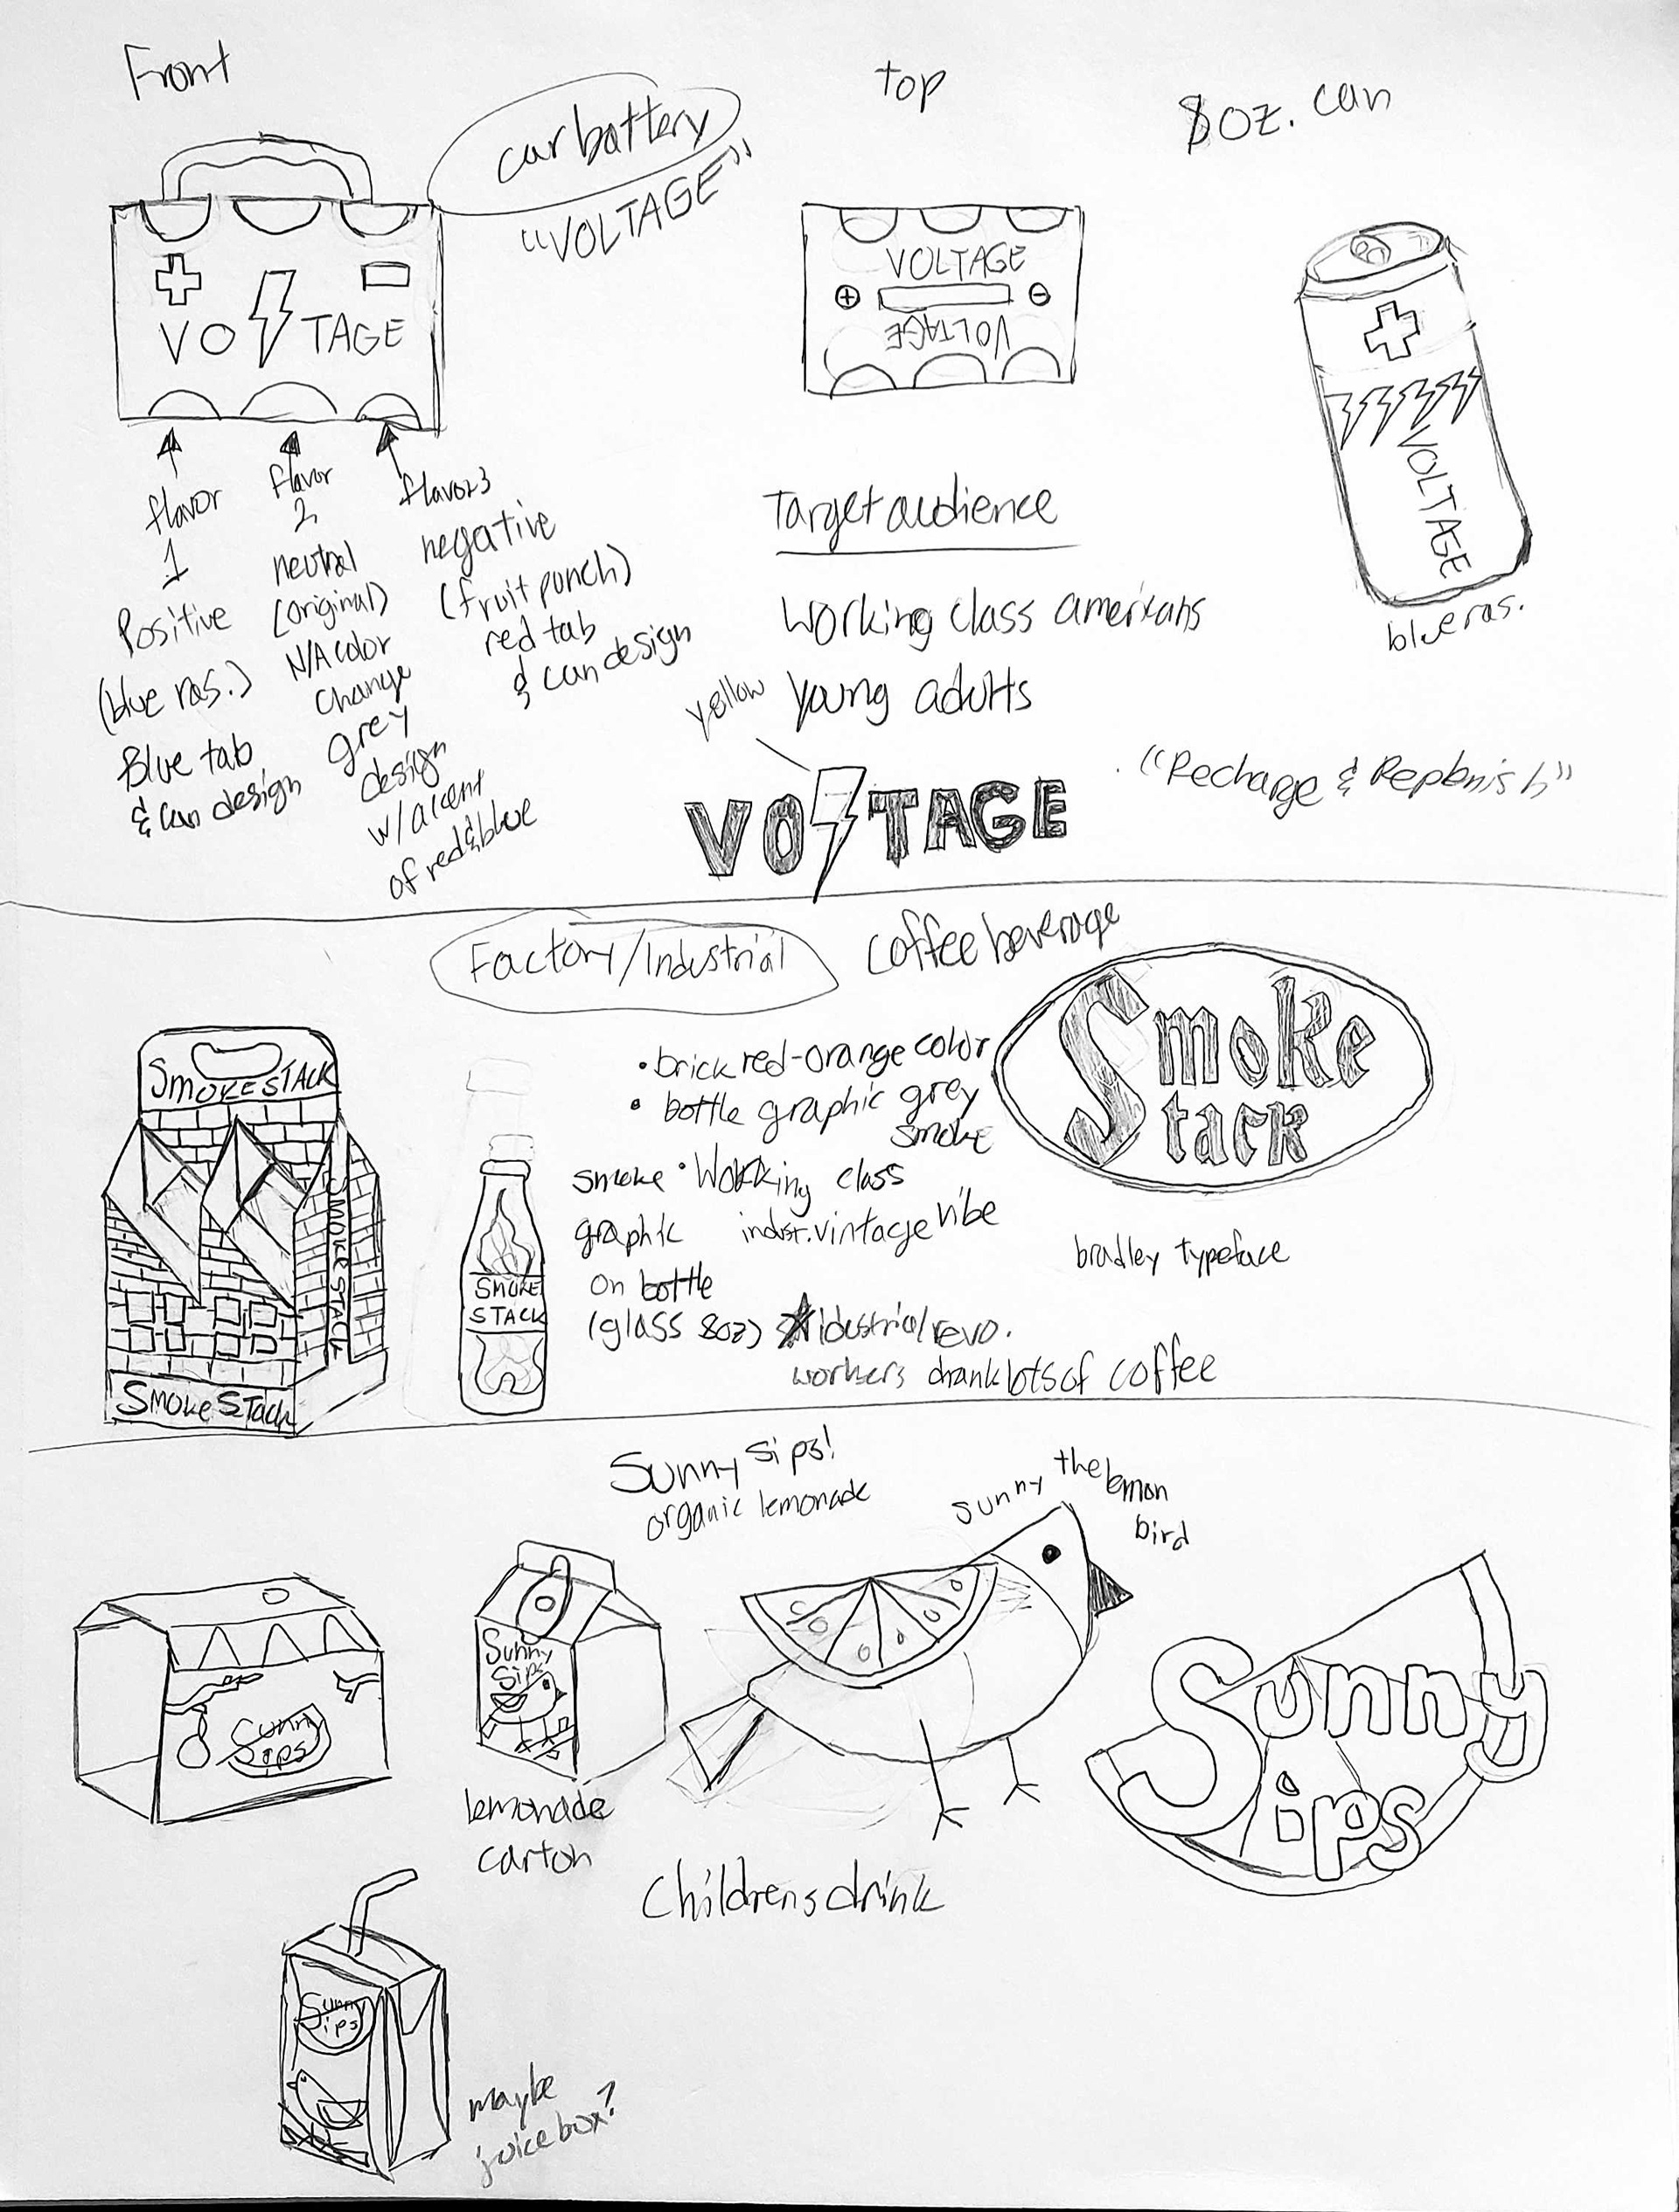 Front
car battery
"VOLTAGE"
top
8oz. can
VO TAGE
VOLTAGE
VOLTAGE
VOLTAGE
blue ras.
flavor
1
Positive
(blue ras.)
Blue tab
& can design
flavor
2
neutral
(original)
N/A color
change
grey
design
w/ acent
of red&blue
flavor 3
negative
(fruit punch)
red tab
& can design
Target audience
Working class americans
young adults
yellow
VO TAGE
"Recharge & Replenish"
Factory/Industrial
Coffee beverage
SmokesTACK
SMOKESTACK
SmokeSTack
SMOKE
STACK
• brick red-orange color
• bottle graphic grey
smoke
• Working class
indust. vintage vibe
smoke
graphic
on bottle
(glass 8oz)
idustrial/revo.
workers drank lots of coffee
Smoke
tack
bradley typeface
Sunny Sips!
organic lemonade
Sunny the lemon
bird
Sunny
Sips
Sunny
Sips
lemonade
carton
Sunny
ips
Childrens drink
Sunny
ips
maybe
juice box?